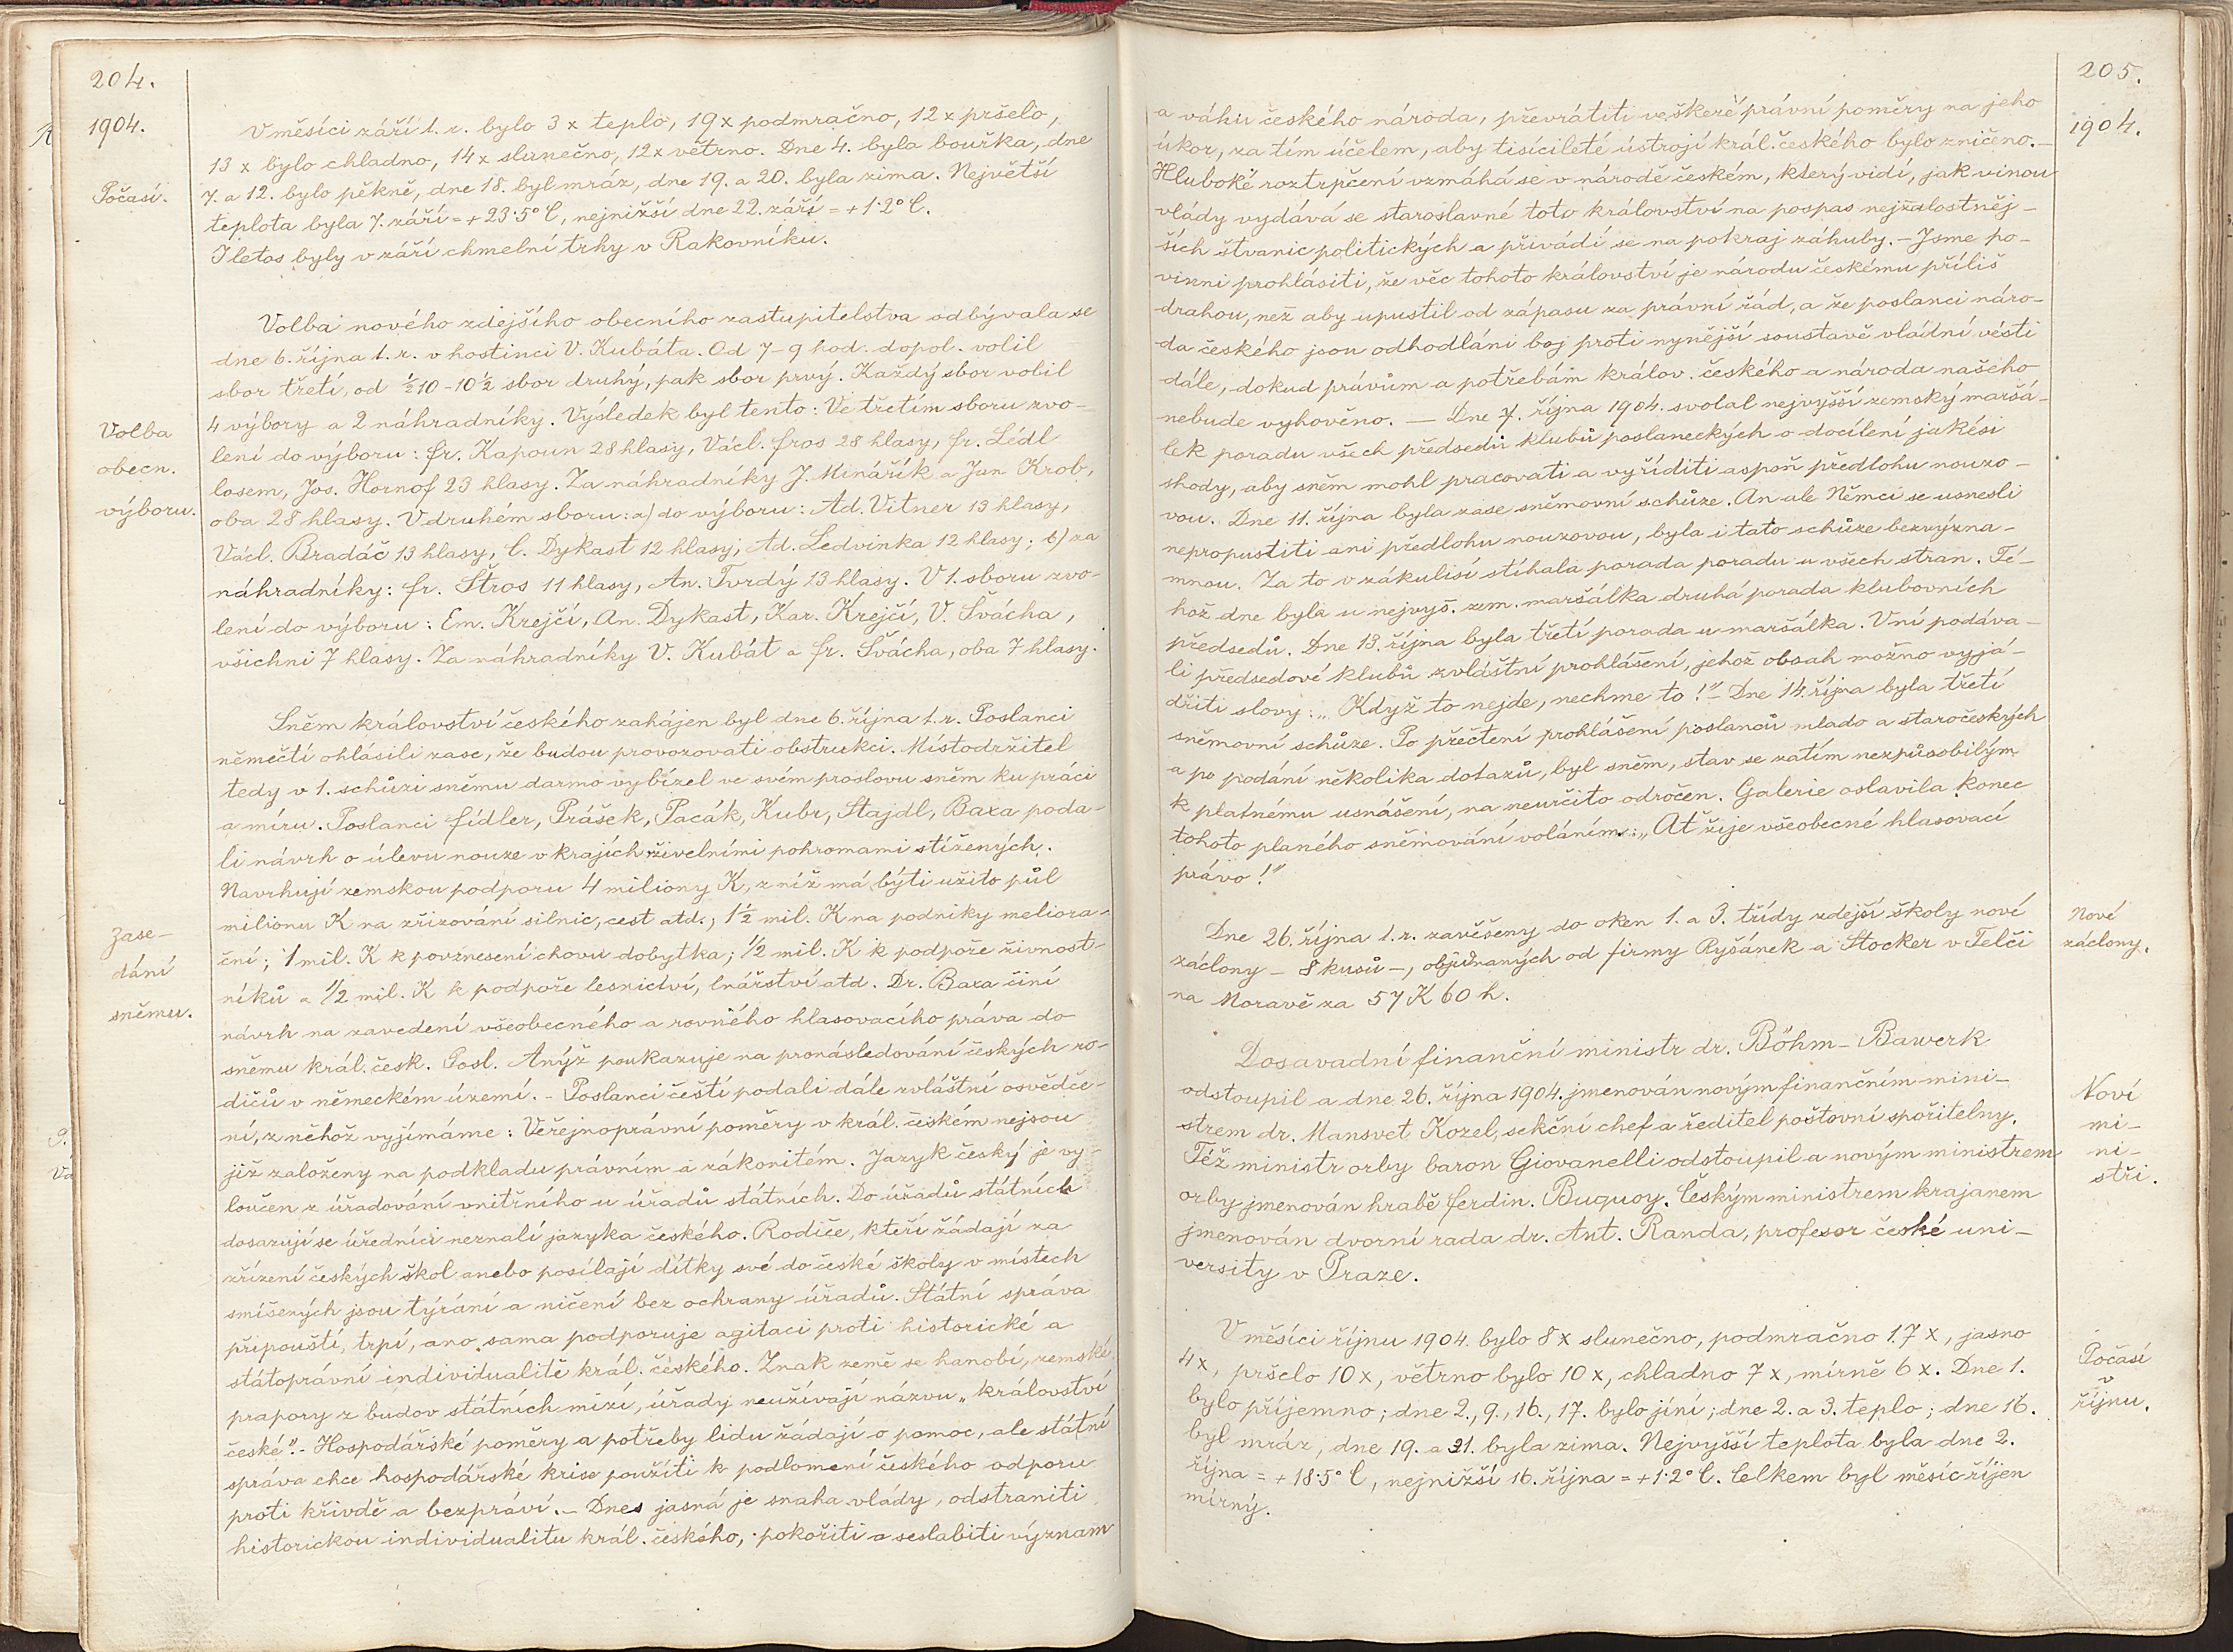 204.
1904.
Počasí.
V měsíci září t. r. bylo 3 x teplo, 19 x podmračno, 12 x pršelo,
13 x bylo chladno, 14 x slunečno, 12 x větrno. Dne 4. byla bouřka, dne
7. a 12. bylo pěkně, dne 18. byl mráz, dne 19. a 20. byla zima. Největší
teplota byla 7. září = + 23·5° C, nejnižší dne 22. září = + 1·2° C.
I letos byly v září chmelní trhy v Rakovníku.
Volba
obecn.
výboru.
Volba nového zdejšího obecního zastupitelstva odbývala se
dne 6. října t. r. v hostinci V. Kubáta. Od 7-9 hod. dopol. volil
sbor třetí, od ½10-10½ sbor druhý, pak sbor prvý. Každý sbor volil
4 výbory a 2 náhradníky. Výsledek byl tento: Ve třetím sboru zvo-
leni do výboru: fr. Kapoun 28 hlasy, Václ. fros 28 hlasy, fr. Lédl
losem, Jos. Hornof 23 hlasy. Za náhradníky J. Minářík a Jan Krob,
oba 28 hlasy. V druhém sboru: a) do výboru: Ad. Vitner 13 hlasy,
Václ. Bradáč 13 hlasy, C. Dykast 12 hlasy, Ad. Ledvinka 12 hlasy; b) za
náhradníky: fr. Štros 11 hlasy, An. Tvrdý 13 hlasy. V 1. sboru zvo-
leni do výboru: Em. Krejčí, An. Dykast, Kar. Krejčí, V. Švácha,
všichni 7 hlasy. Za náhradníky V. Kubát a fr. Švácha, oba 7 hlasy.
Zase-
dání
sněmu.
Sněm království českého zahájen byl dne 6. října t. r. Poslanci
němečtí ohlásili zase, že budou provozovati obstrukci. Místodržitel
tedy v 1. schůzi sněmu darmo vybízel ve svém proslovu sněm ku práci
a míru. Poslanci fídler, Prášek, Pacák, Kubr, Stajdl, Baxa poda-
li návrh o úlevu nouze v krajích živelními pohromami stížených.
Navrhují zemskou podporu 4 miliony K, z níž má býti užito půl
milionu K na zřizování silnic, cest atd.; 1½ mil. K na podniky meliora-
ční; 1 mil. K k povznesení chovu dobytka; ½ mil. K k podpoře živnost-
níků a ½ mil. K k podpoře lesnictví, lnářství atd. Dr. Baxa činí
návrh na zavedení všeobecného a rovného hlasovacího práva do
sněmu král. česk. Posl. Anýž poukazuje na pronásledování českých ro-
dičů v německém území. - Poslanci čeští podali dále zvláštní osvědče-
ní, z něhož vyjímáme: Veřejnoprávní poměry v král. českém nejsou
již založeny na podkladu právním a zákonitém. Jazyk český je vy-
loučen z úřadování vnitřního u úřadů státních. Do úřadů státních
dosazují se úředníci neznalí jazyka českého. Rodiče, kteří žádají za
zřízení českých škol anebo posílají dítky své do české školy v místech
smíšených jsou týráni a ničeni bez ochrany úřadů. Státní správa
připouští, trpí, ano sama podporuje agitaci proti historické a
státoprávní individualitě král. českého. Znak země se hanobí, zemské
prapory z budov státních mizí, úřady neužívají názvu „království
české". - Hospodářské poměry a potřeby lidu žádají o pomoc, ale státní
správa chce hospodářské krise použíti k podlomení českého odporu
proti křivdě a bezpráví. - Dnes jasná je snaha vlády, odstraniti
historickou individualitu král. českého, pokořiti a seslabiti význam
205.
1904.
a váhu českého národa, převrátiti veškeré právní poměry na jeho
úkor, za tím účelem, aby tisícileté ústrojí král. českého bylo zničeno. -
Hluboké roztrpčení vzmáhá se v národě českém, který vidí, jak vinou
vlády vydává se staroslavné toto království na pospas nejžalostněj-
ších štvanic politických a přivádí se na pokraj záhuby. - Jsme po-
vinni prohlásiti, že věc tohoto království je národu českému příliš
drahou, než aby upustil od zápasu za právní řád, a že poslanci náro-
da českého jsou odhodláni boj proti nynější soustavě vládní vésti
dále, dokud právům a potřebám králov. českého a národa našeho
nebude vyhověno. - Dne 7. října 1904. svolal nejvyšší zemský maršá-
lek poradu všech předsedů klubů poslaneckých o docílení jakési
shody, aby sněm mohl pracovati a vyříditi aspoň předlohu nouzo-
vou. Dne 11. října byla zase sněmovní schůze. An ale Němci se usnesli
nepropustiti ani předlohu nouzovou, byla i tato schůze bezvýzna-
mnou. Za to v zákulisí stíhala porada poradu u všech stran. Té-
hož dne byla u nejvyš. zem. maršálka druhá porada klubovních
předsedů. Dne 13. října byla třetí porada u maršálka. V ní podáva-
li předsedové klubů zvláštní prohlášení, jehož obsah možno vyjá-
dřiti slovy: „Když to nejde, nechme to!" - Dne 14. října byla třetí
sněmovní schůze. Po přečtení prohlášení poslanců mlado a staročeských
a po podání několika dotazů, byl sněm, stav se zatím nezpůsobilým
k platnému usnášení, na neurčito odročen. Galerie oslavila konec
tohoto planého sněmování voláním: „Ať žije všeobecné hlasovací
právo!"
Nové
záclony.
Dne 26. října t. r. zavěšeny do oken 1. a 3. třídy zdejší školy nové
záclony - 8 kusů -, objednaných od firmy Ryšánek a Stocker v Telči
na Moravě za 57 K 60 h.
Noví
mi-
ni-
stři.
Dosavadní finanční ministr dr. Böhm-Bawerk
odstoupil a dne 26. října 1904. jmenován novým finančním mini-
strem dr. Mansvet Kozel, sekční chef a ředitel poštovní spořitelny.
Též ministr orby baron Giovanelli odstoupil a novým ministrem
orby jmenován hrabě ferdin. Buquoy. Českým ministrem krajanem
jmenován dvorní rada dr. Ant. Randa, profesor české uni-
versity v Praze.
Počasí
v
říjnu.
V měsíci říjnu 1904. bylo 8 x slunečno, podmračno 17 x, jasno
4 x, pršelo 10 x, větrno bylo 10 x, chladno 7 x, mírně 6 x. Dne 1.
bylo příjemno; dne 2., 9., 16., 17. bylo jíní; dne 2. a 3. teplo; dne 16.
byl mráz, dne 19. a 21. byla zima. Nejvyšší teplota byla dne 2.
října = + 18·5° C, nejnižší 16. října = + 1·2° C. Celkem byl měsíc říjen
mírný.